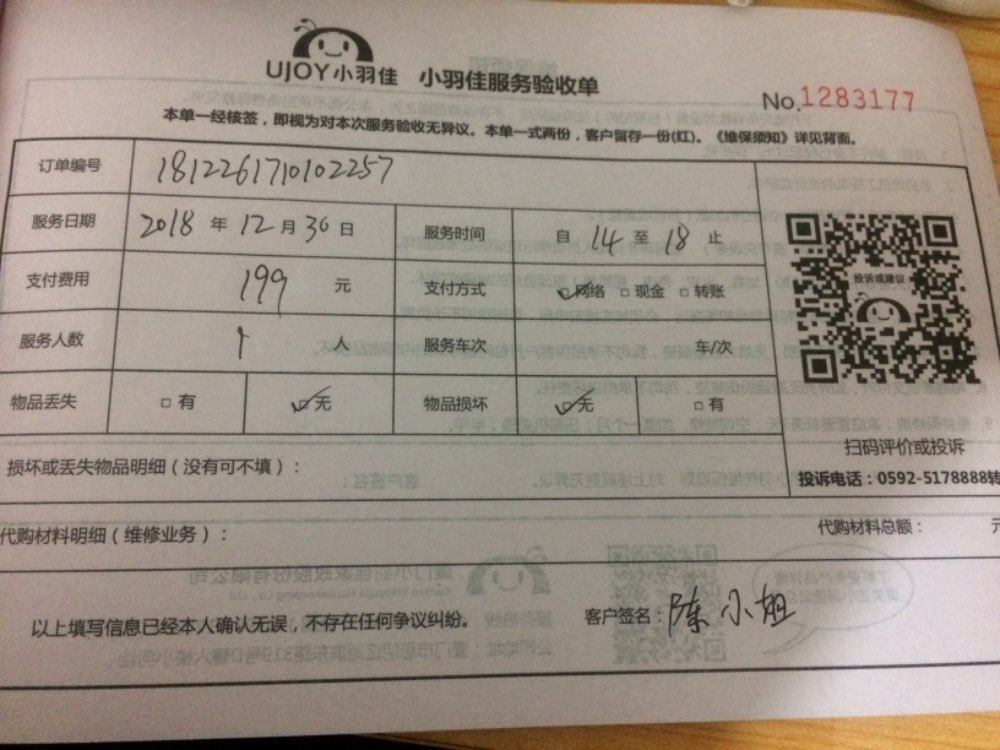 UJOY小羽佳 小羽佳服务验收单
No.1283177
本单一经核签，即视为对本次服务验收无异议。本单一式两份，客户留存一份(红)。《维保须知》详见背面。
订单编号 181226171010225​7
服务日期 2018 年 12 月 30 日 服务时间 自 14 至 18 止
支付费用 199 元 支付方式 ☑网络 □现金 □转账
服务人数 1 人 服务车次 车/次
物品丢失 □有 ☑无 物品损坏 ☑无 □有
投诉或建议
扫码评价或投诉
投诉电话：0592-5178888转
损坏或丢失物品明细（没有可不填）：
代购材料明细（维修业务）： 代购材料总额： 元
以上填写信息已经本人确认无误，不存在任何争议纠纷。 客户签名：陈小姐